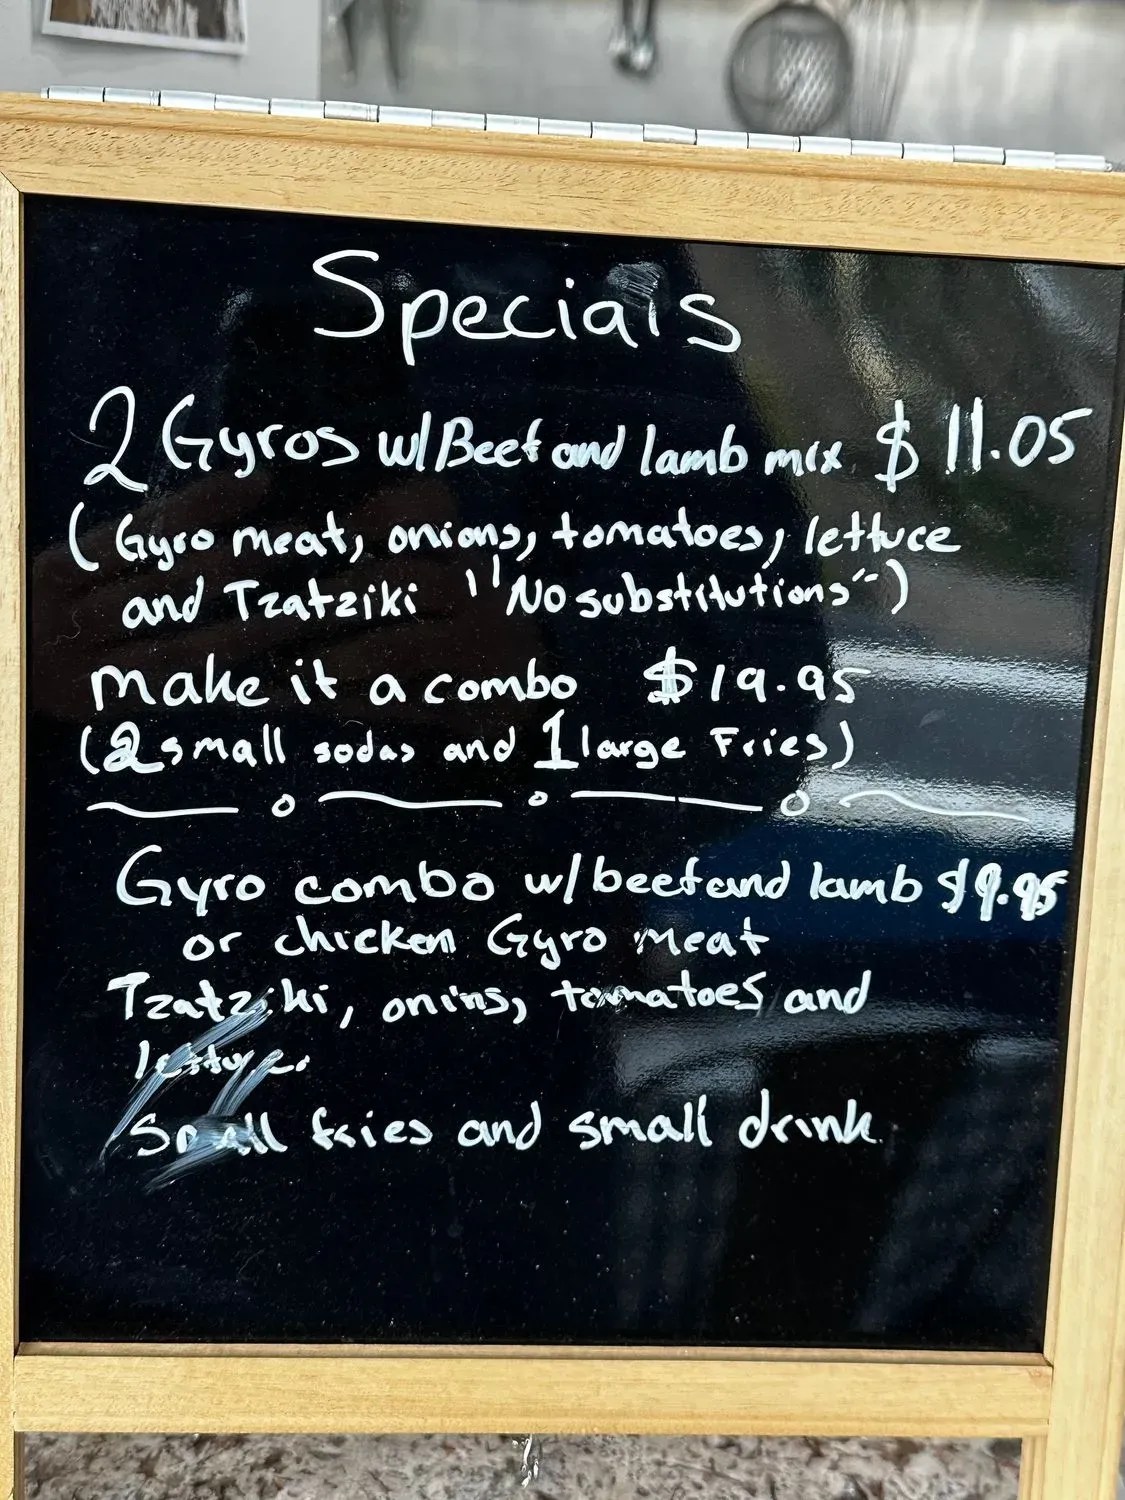 Specials
2 Gyros w/Beef and lamb mix $11.05
(Gyro meat, onions, tomatoes, lettuce
and Tzatziki "No substitutions")
make it a combo $19.95
(2 small sodas and 1 large Fries)
Gyro combo w/beef and lamb $9.95
or chicken Gyro meat
Tzatziki, onins, tomatoes and
lettuce.
Small fries and small drink.